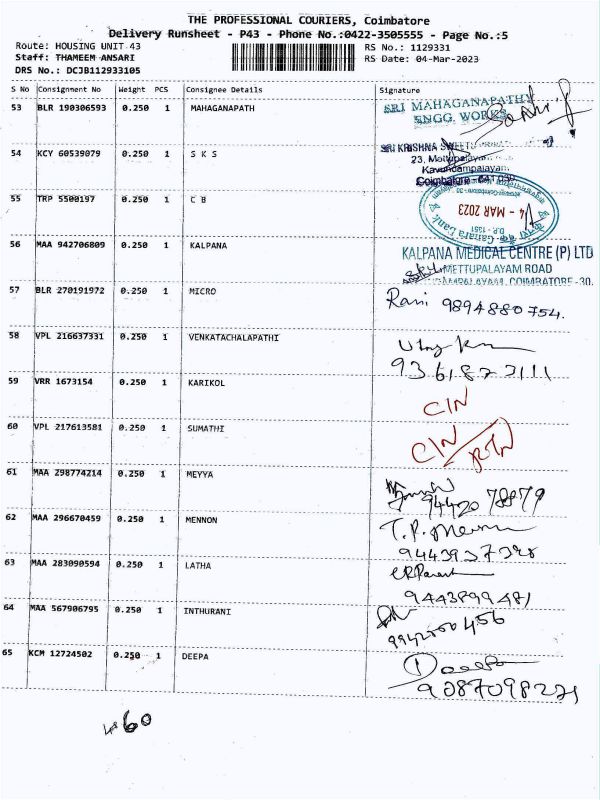 THE PROFESSIONAL COURIERS, Coimbatore
Delivery Runsheet - P43 - Phone No.:0422-3505555 - Page No.:5
Route: HOUSING UNIT 43 RS No.: 1129331
Staff: THAMEEM ANSARI RS Date: 04-Mar-2023
DRS No.: DCJB112933105
S No Consignment No Weight PCS Consignee Details Signature
53 BLR 190306593 0.250 1 MAHAGANAPATH
SRI MAHAGANAPATHY
ENGG. WORKS
54 KCY 60539079 0.250 1 S K S
SRI KRISHNA SWEETS
23, Mettupalayam
Kavundampalayam
Coimbatore - 641 030
55 TRP 5500197 0.250 1 C B
Canara Bank
4 - MAR 2023
D.P. - 1551
56 MAA 942706809 0.250 1 KALPANA
KALPANA MEDICAL CENTRE (P) LTD
METTUPALAYAM ROAD
COIMBATORE - 30.
57 BLR 270191972 0.250 1 MICRO Rani 9894880754.
58 VPL 216637331 0.250 1 VENKATACHALAPATHI
9361873111
59 VRR 1673154 0.250 1 KARIKOL CIN
60 VPL 217613581 0.250 1 SUMATHI CIN RTN
61 MAA 298774214 0.250 1 MEYYA
94420 78879
62 MAA 296670459 0.250 1 MENNON T.P. Menon
9443937398
63 MAA 283090594 0.250 1 LATHA
9443899481
64 MAA 567906795 0.250 1 INTHURANI
9942200456
65 KCM 12724502 0.250 1 DEEPA Deepa
9087098221
60